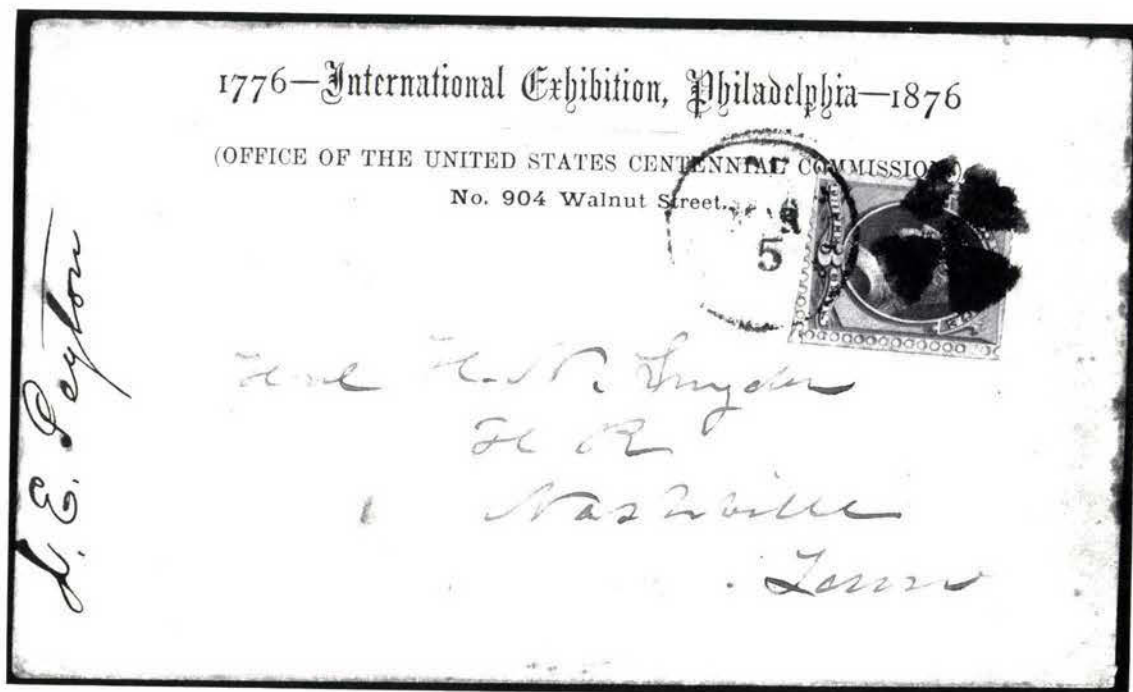 1776—International Exhibition, Philadelphia—1876
(OFFICE OF THE UNITED STATES CENTENNIAL COMMISSION)
No. 904 Walnut Street.
5
H. N. Snyder
H R
Nashville
Tenn
E. Peyton